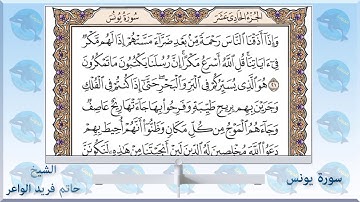 الجزء الحادي عشر
سورة يونس
وَإِذَا أَذَقْنَا النَّاسَ رَحْمَةً مِّن بَعْدِ ضَرَّاءَ مَسَّتْهُمْ إِذَا لَهُم مَّكْرٌ
فِي ءَايَاتِنَا قُلِ اللَّهُ أَسْرَعُ مَكْرًا إِنَّ رُسُلَنَا يَكْتُبُونَ مَا تَمْكُرُونَ
٢١ هُوَ الَّذِي يُسَيِّرُكُمْ فِي الْبَرِّ وَالْبَحْرِ حَتَّى إِذَا كُنتُمْ فِي الْفُلْكِ
وَجَرَيْنَ بِهِم بِرِيحٍ طَيِّبَةٍ وَفَرِحُوا بِهَا جَاءَتْهَا رِيحٌ عَاصِفٌ
وَجَاءَهُمُ الْمَوْجُ مِن كُلِّ مَكَانٍ وَظَنُّوا أَنَّهُمْ أُحِيطَ بِهِمْ
دَعَوُا اللَّهَ مُخْلِصِينَ لَهُ الدِّينَ لَئِنْ أَنجَيْتَنَا مِنْ هَذِهِ لَنَكُونَنَّ
سورة يونس
الشيخ
حاتم فريد الواعر